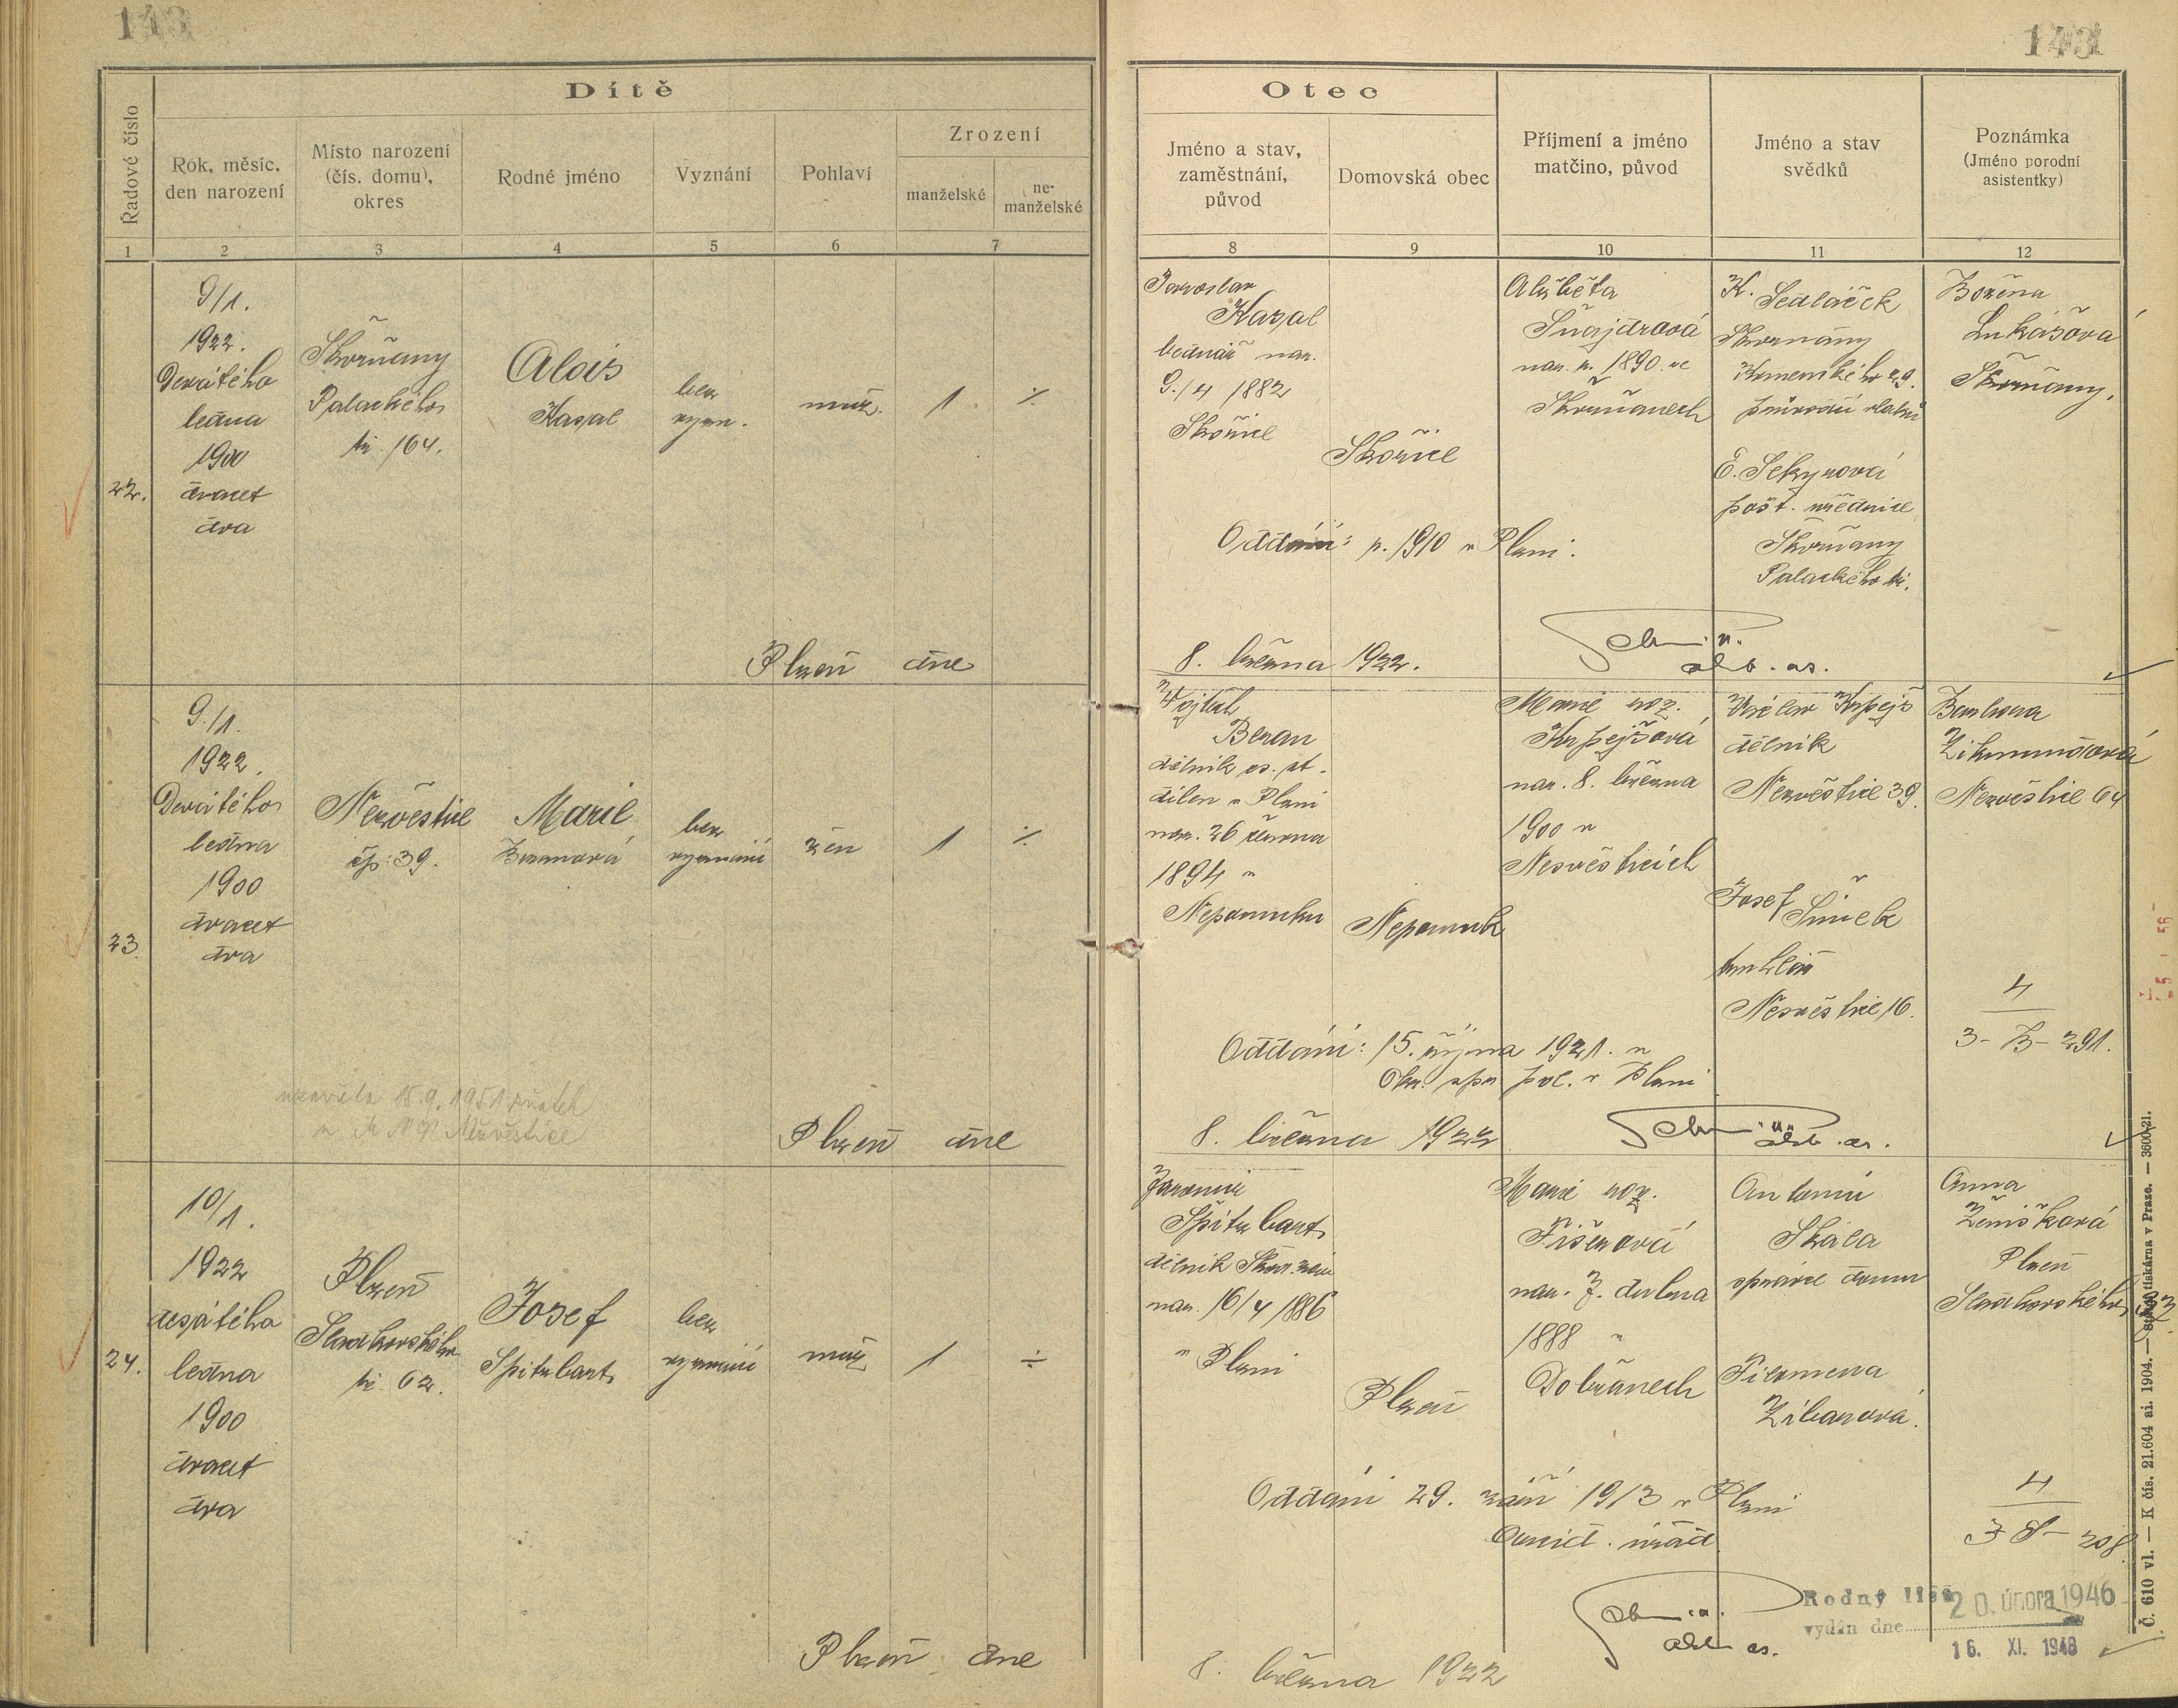 143
143
Dítě
Řadové číslo
Rok, měsíc,
den narození
Místo narození
(čís. domu),
okres
Rodné jméno
Vyznání
Pohlaví
Zrození
manželské
ne-
manželské
1
2
3
4
5
6
7
Otec
Jméno a stav,
zaměstnání,
původ
Domovská obec
Příjmení a jméno
matčino, původ
Jméno a stav
svědků
Poznámka
(Jméno porodní
asistentky)
8
9
10
11
12
22.
9/1.
1922.
Devátého
ledna
1900
dvacet
dva
Škvrňany
Palackého
tř. 164.
Alois
Kasal
bez
vyzn.
muž.
1
÷
Jaroslav
Kasal
bednář nar.
9./4 1882
Skořice
Skořice
Alžběta
nar. r. 1890 ve
Škvrňanech
K. Sedláček
Škvrňany
Komenského 29.
E. Sekyrová
pošt. úřednice
Škvrňany
Palackého tř.
Božena
Lukášová
Škvrňany.
Oddáni: r. 1910 v Plzni.
Plzeň dne
8. března 1922.
23.
9./1.
1922.
Devátého
ledna
1900
dvacet
dva
Nezvěstice
čp: 39.
Marie
Beranová
bez
vyznání
žen
1
÷
Vojtěch
Beran
dělník čs. st.
dílen v Plzni
nar. 26 června
1894 v
Nepomuku
Nepomuk
Marie roz.
Krpejšová
nar. 8. března
1900 v
Nezvěsticích
Václav Krpejš
dělník
Nezvěstice 39.
Josef Šimek
truhlář
Nezvěstice 16.
Barbora
Zikmundová
Nezvěstice 64
4
3 - B - 291.
Oddáni: 15. října 1921. v
Okr. spr. pol. v Plzni
uzavřela 15.9.1951 sňatek
u M N V Nezvěstice
Plzeň dne
8. března 1922
24.
10/1.
1922
desátého
ledna
1900
dvacet
dva
Plzeň
Sladkovského
tř. 62.
Josef
Špitzbart
bez
vyznání
muž
1
÷
Jaromír
Špitzbart
dělník Škod. záv.
nar. 16/4 1886
v Plzni
Plzeň
Marie roz.
Fišerová
nar. 7. dubna
1888 v
Dobřanech
Antonín
Skála
správce domu
Filomena
Zíbarová.
Anna
Ženíšková
Plzeň
Sladkovského
4
3 S - 208
Oddáni 29. září 1913 v Plzni
úřad
Rodný list
vydán dne
20. února 1946
16. XI. 1948
Plzeň dne
8. března 1922
Č. 610 vl. — K čís. 21.604 ai. 1904. — Státní tiskárna v Praze. — 3600-21.